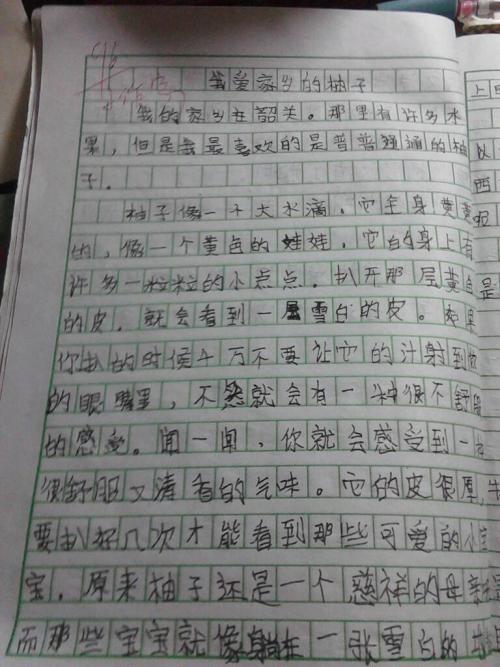 我爱家乡的柚子
我的家乡在韶关。那里有许多水
果，但是我最喜欢的是普普通通的柚
子．
柚子像一个大水滴．它全身黄黄
的，像一个黄色的娃娃，它的身上有
许多一粒粒的小点点．扒开那层黄色
的皮．就会看到一层雪白的皮。如果
你扒的时候千万不要让它的汁射到
的眼睛里，不然就会有一种很不舒服
的感受。闻一闻、你就会感受到一
很舒服又清香的气味。它的皮很厚，
要扒好几次才能看到那些可爱的小
宝．原来柚子还是一个慈祥的母亲
而那些宝宝就像躺在一张雪白的